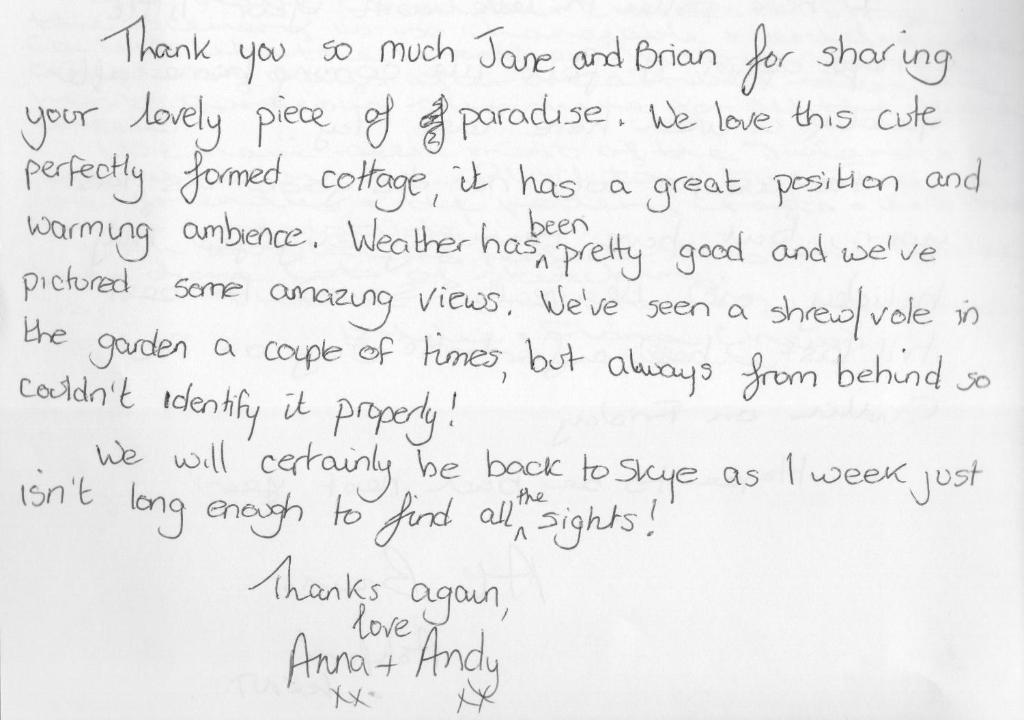 Thank you so much Jane and Brian for sharing
your lovely piece of paradise. We love this cute
perfectly formed cottage, it has a great position and
warming ambience. Weather has been pretty good and we've
pictured some amazing views. We've seen a shrew/vole in
the garden a couple of times, but always from behind so
couldn't identify it properly!
We will certainly be back to Skye as 1 week just
isn't long enough to find all the sights!
Thanks again,
love
Anna + Andy
xx xx